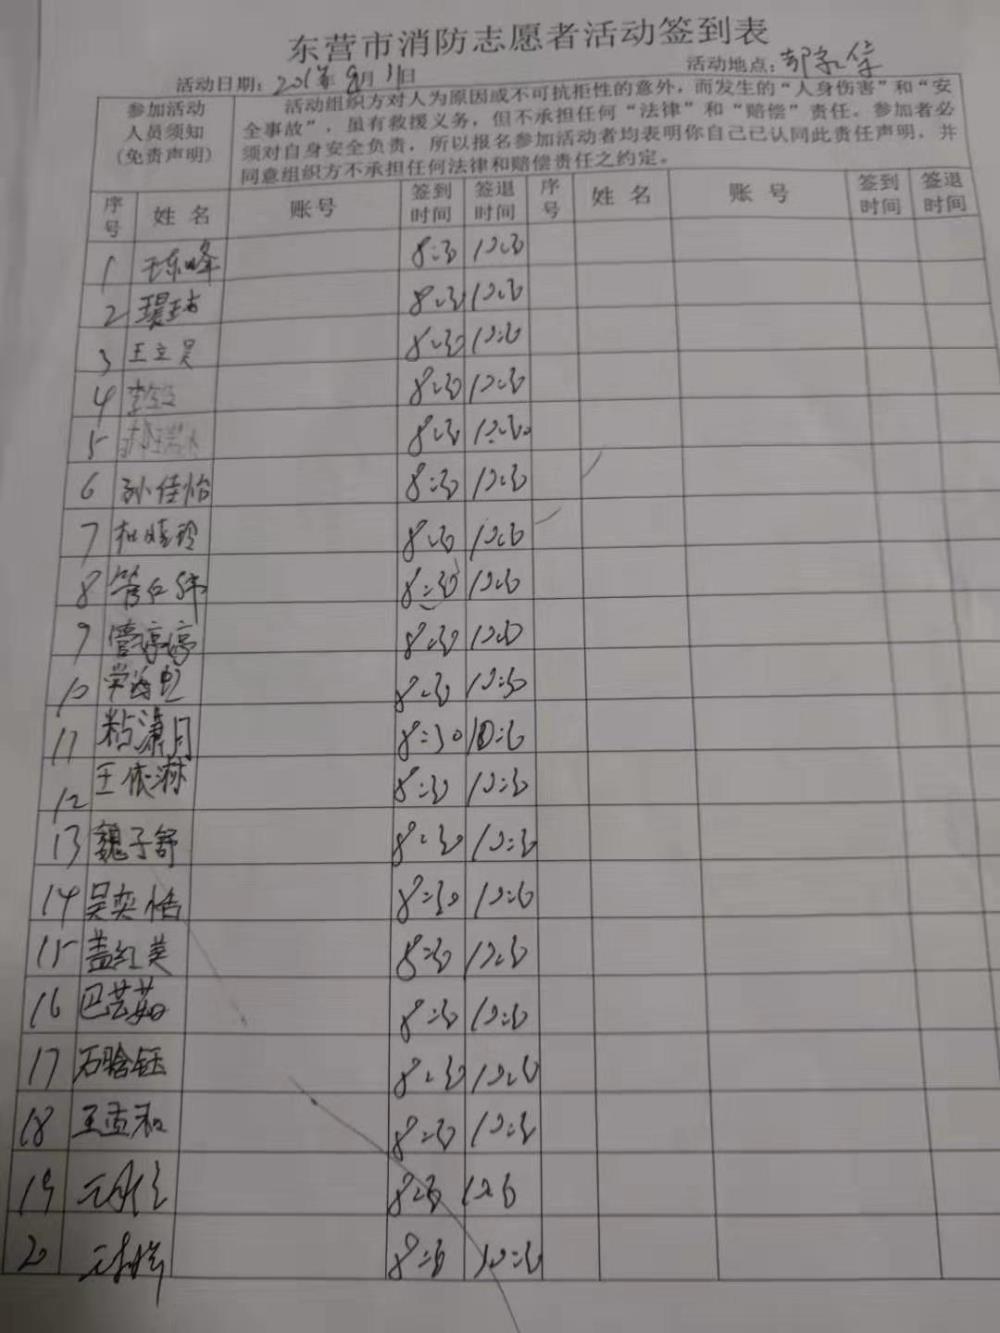 东营市消防志愿者活动签到表
活动日期: 月 11日 活动地点:
参加活动人员须知(免责声明)
活动组织方对人为原因或不可抗拒性的意外，而发生的“人身伤害”和“安
全事故”，虽有救援义务，但不承担任何“法律”和“赔偿”责任。参加者必
须对自身安全负责，所以报名参加活动者均表明你自己已认同此责任声明，并
同意组织方不承担任何法律和赔偿责任之约定。
序号 姓 名 账 号 签到时间 签退时间 序号 姓 名 账 号 签到时间 签退时间
1 王东峰 8:30 10:30
2 8:30 10:30
3 王立昊 8:30 10:30
4 8:30 10:30
5 8:30 10:30
6 孙佳怡 8:30 10:30
7 8:30 10:30
8 8:30 10:30
9 管婷婷 8:30 10:30
10 8:30 10:30
11 粘潇月 8:30 10:30
12 王依淋 8:30 10:30
13 魏子舒 8:30 10:30
14 吴奕恬 8:30 10:30
15 盖红美 8:30 10:30
16 巴芸茹 8:30 10:30
17 石晗钰 8:30 10:30
18 王孟和 8:30 10:30
19 8:30 10:30
20 8:30 10:30